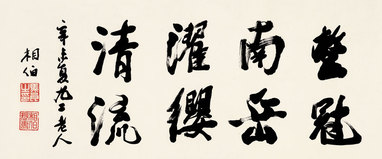 整冠
南岳
濯纓
清流
辛未夏九二老人
相伯